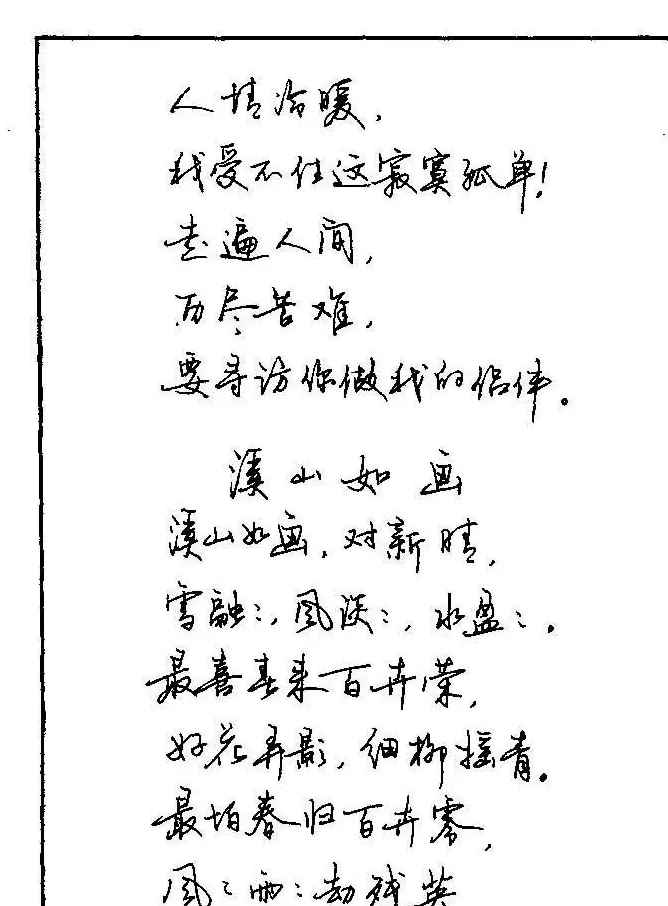 人情冷暖,
我受不住这寂寞孤单!
走遍人间,
历尽苦难,
要寻访你做我的侣伴。
溪山如画
溪山如画,对新晴,
雪融:,风淡:,水盈:。
最喜春来百卉荣,
好花弄影,细柳摇青。
最怕春归百卉零,
风:雨:劫残英